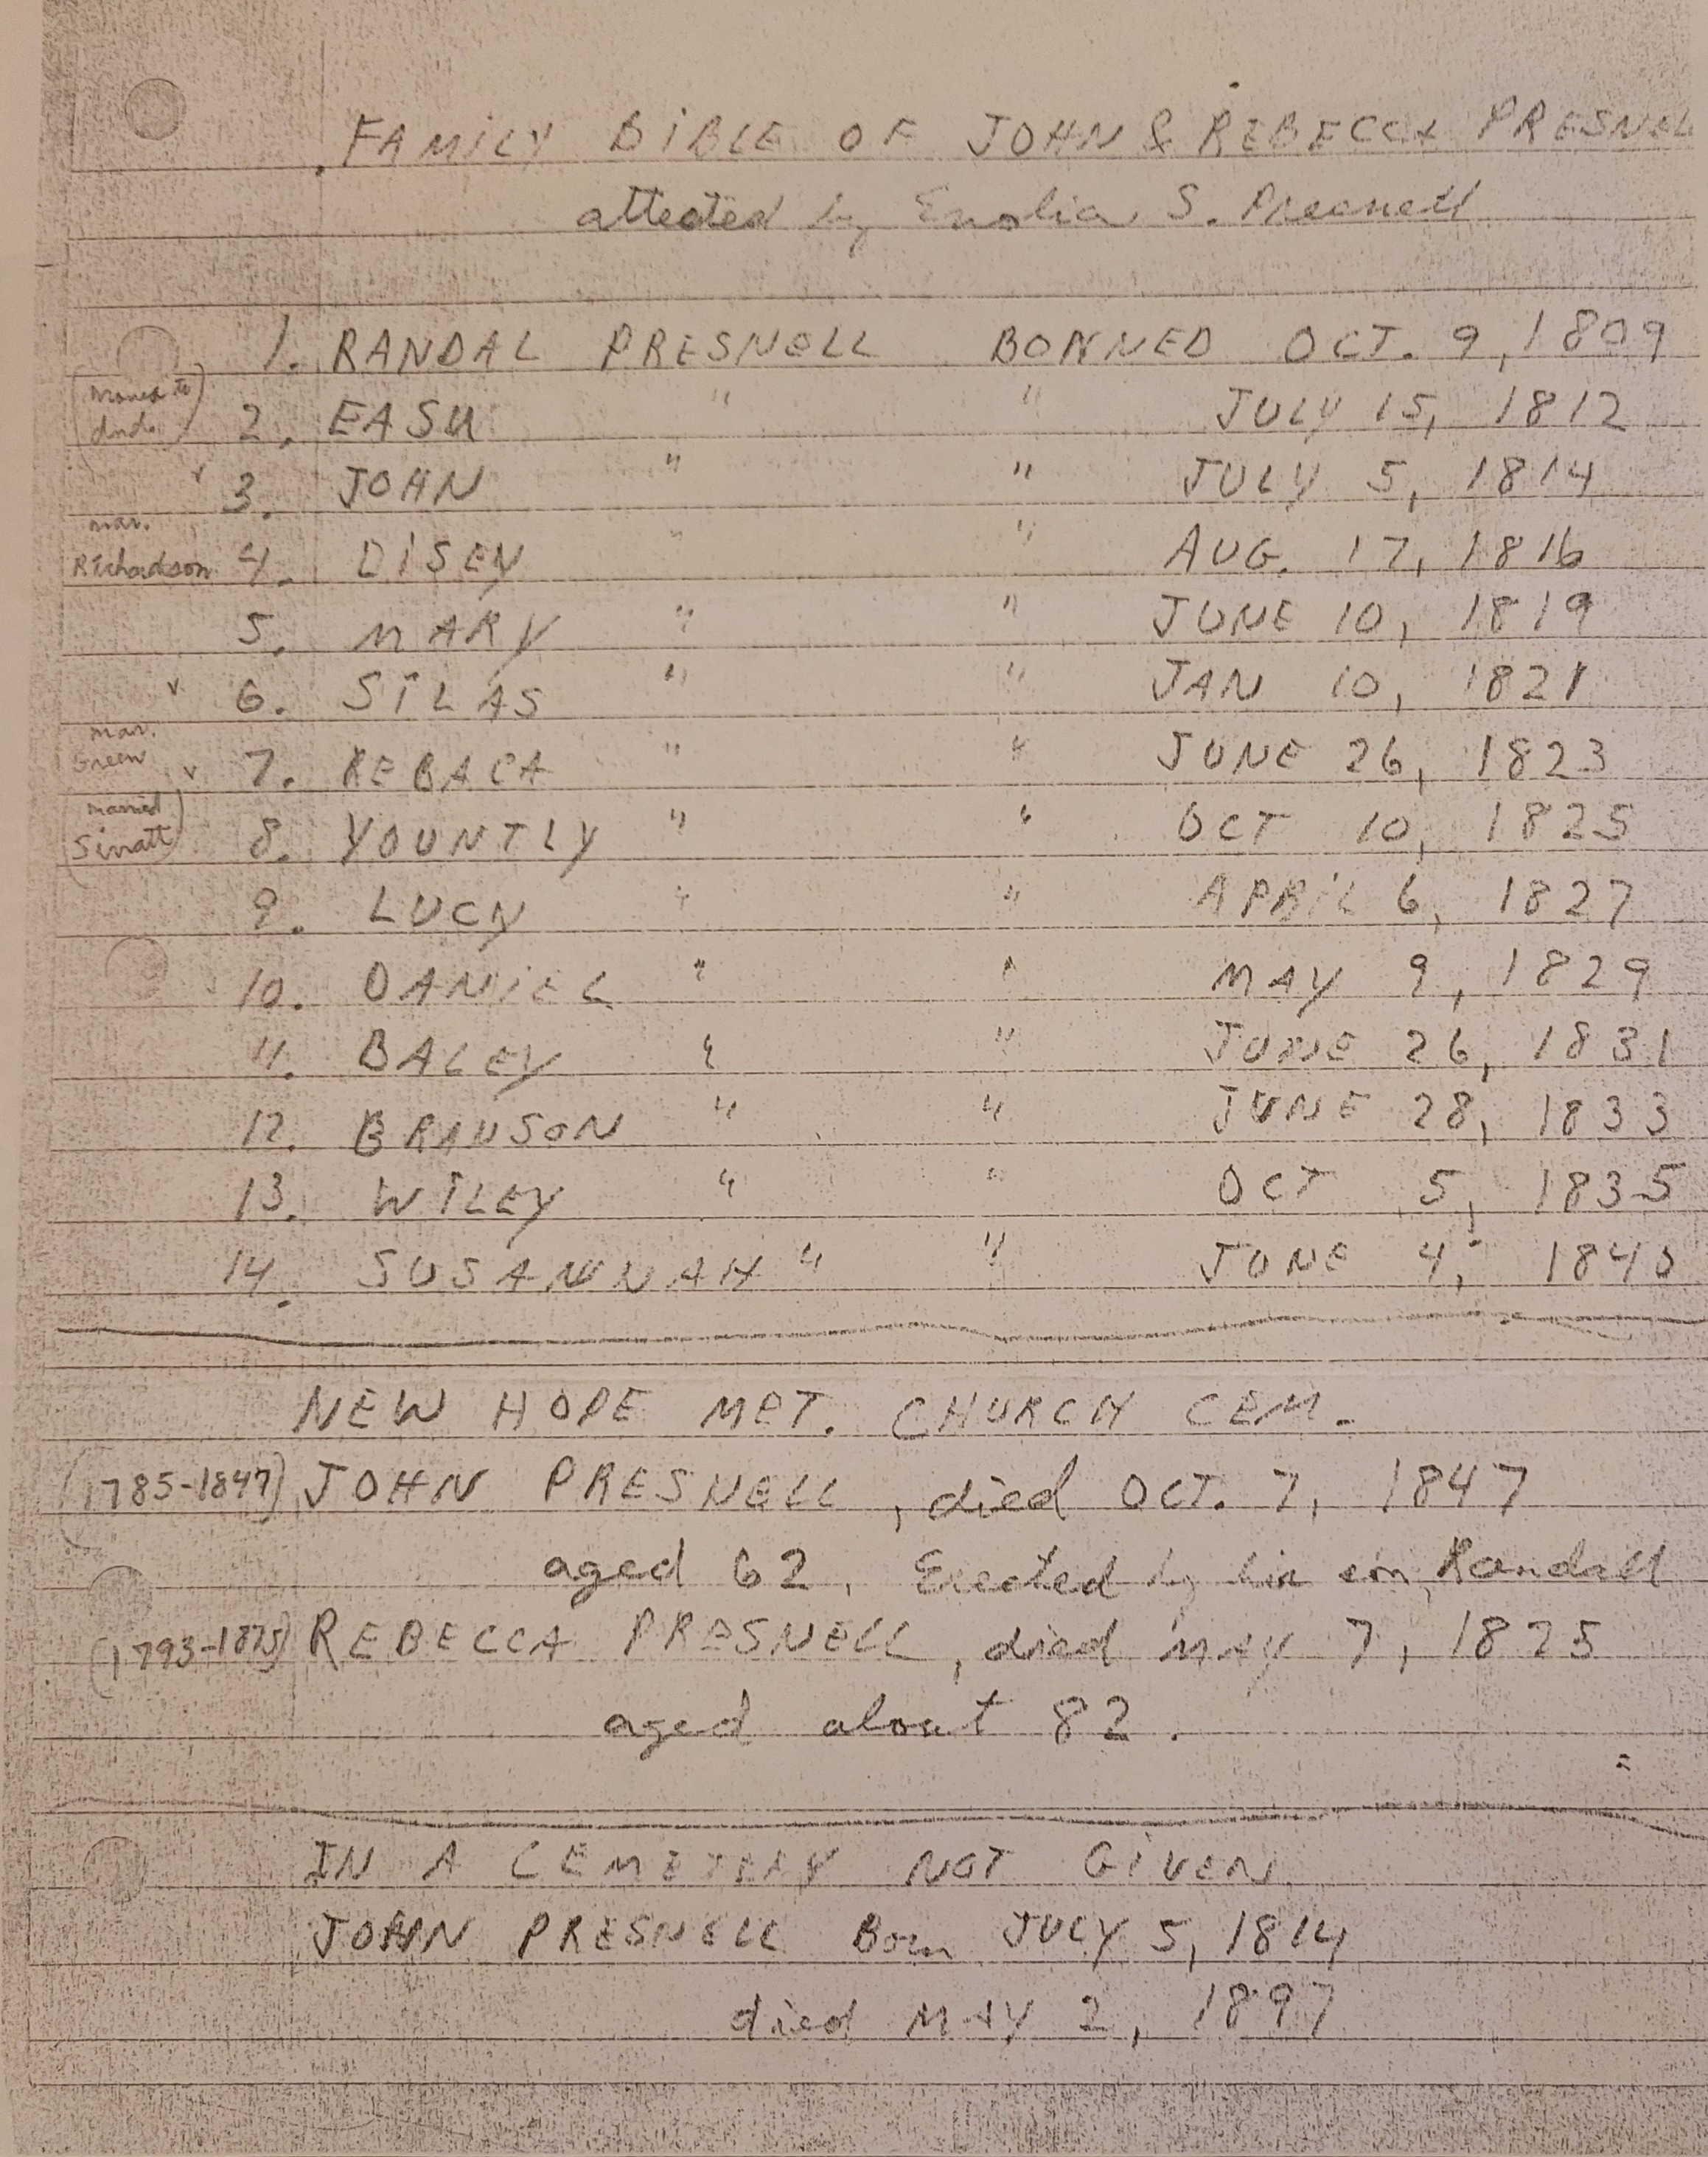 FAMILY BIBLE OF JOHN & REBECCA PRESNEL
attested by S. Presnell
1. RANDAL PRESNELL BONNED OCT. 9, 1809
(Moved to
Ind.) 2. EASU " " JULY 15, 1812
v 3. JOHN " " JULY 5, 1814
mar.
Richardson 4. DISEY " " AUG. 17, 1816
5. MARY " " JUNE 10, 1819
v 6. SILAS " " JAN 10, 1821
mar.
Green v 7. REBACA " " JUNE 26, 1823
(married
Sinatt) 8. YOUNTLY " " OCT 10, 1825
9. LUCY " " APRIL 6, 1827
10. DANIEL " " MAY 9, 1829
11. BALEY " " JUNE 26, 1831
12. BRAUSON " " JUNE 28, 1833
13. WILEY " " OCT 5, 1835
14. SUSANNAH " " JUNE 4, 1840
NEW HOPE MET. CHURCH CEM.
(1785-1847) JOHN PRESNELL, died OCT. 7, 1847
aged 62. Erected by his son, Randall
(1793-1875) REBECCA PRESNELL, died MAY 7, 1875
aged about 82.
IN A CEMETERY NOT GIVEN
JOHN PRESNELL Born JULY 5, 1814
died MAY 2, 1897